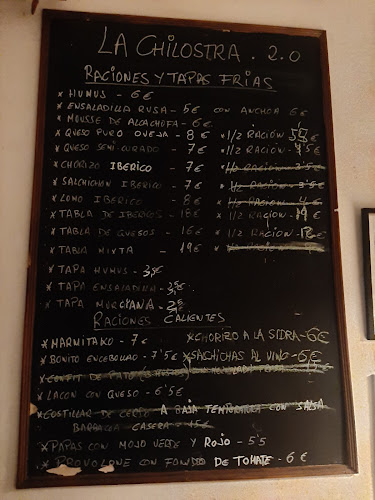 LA CHILOSTRA . 2.0
RACIONES Y TAPAS FRIAS
* HUMUS - 6€
* ENSALADILLA RUSA - 5€ CON ANCHOA 6€
* MOUSSE DE ALCACHOFA - 6€
* QUESO PURO OVEJA - 8€ * 1/2 RACIÓN
* QUESO SEMI CURADO - 7€ * 1/2 RACIÓN -
* CHORIZO IBERICO - 7€ * 1/2 RACIÓN - 3'5€
* SALCHICHON IBERICO - 7€ * 1/2 RACION - 3'5€
* LOMO IBERICO - 8€ * 1/2 RACION -
* TABLA DE IBERICOS - 18€ * 1/2 RACION -
* TABLA DE QUESOS - 16€ * 1/2 RACION -
* TABLA MIXTA - 19€
* TAPA HUMUS -
* TAPA ENSALADILLA -
* TAPA MURCIANA -
RACIONES CALIENTES
* MARMITAKO - 7€ * CHORIZO A LA SIDRA - 6€
* BONITO ENCEBOLLAO - 7'5€ * SALCHICHAS AL VINO - 6€
* CONFIT DE PATO
* LACON CON QUESO - 6'5€
* COSTILLAR DE CERDO A BAJA TEMPERATURA CON SALSA
BARBACOA CASERA - 15€
* PAPAS CON MOJO VERDE Y ROJO - 5'5
* PROVOLONE CON FONDO DE TOMATE - 6€